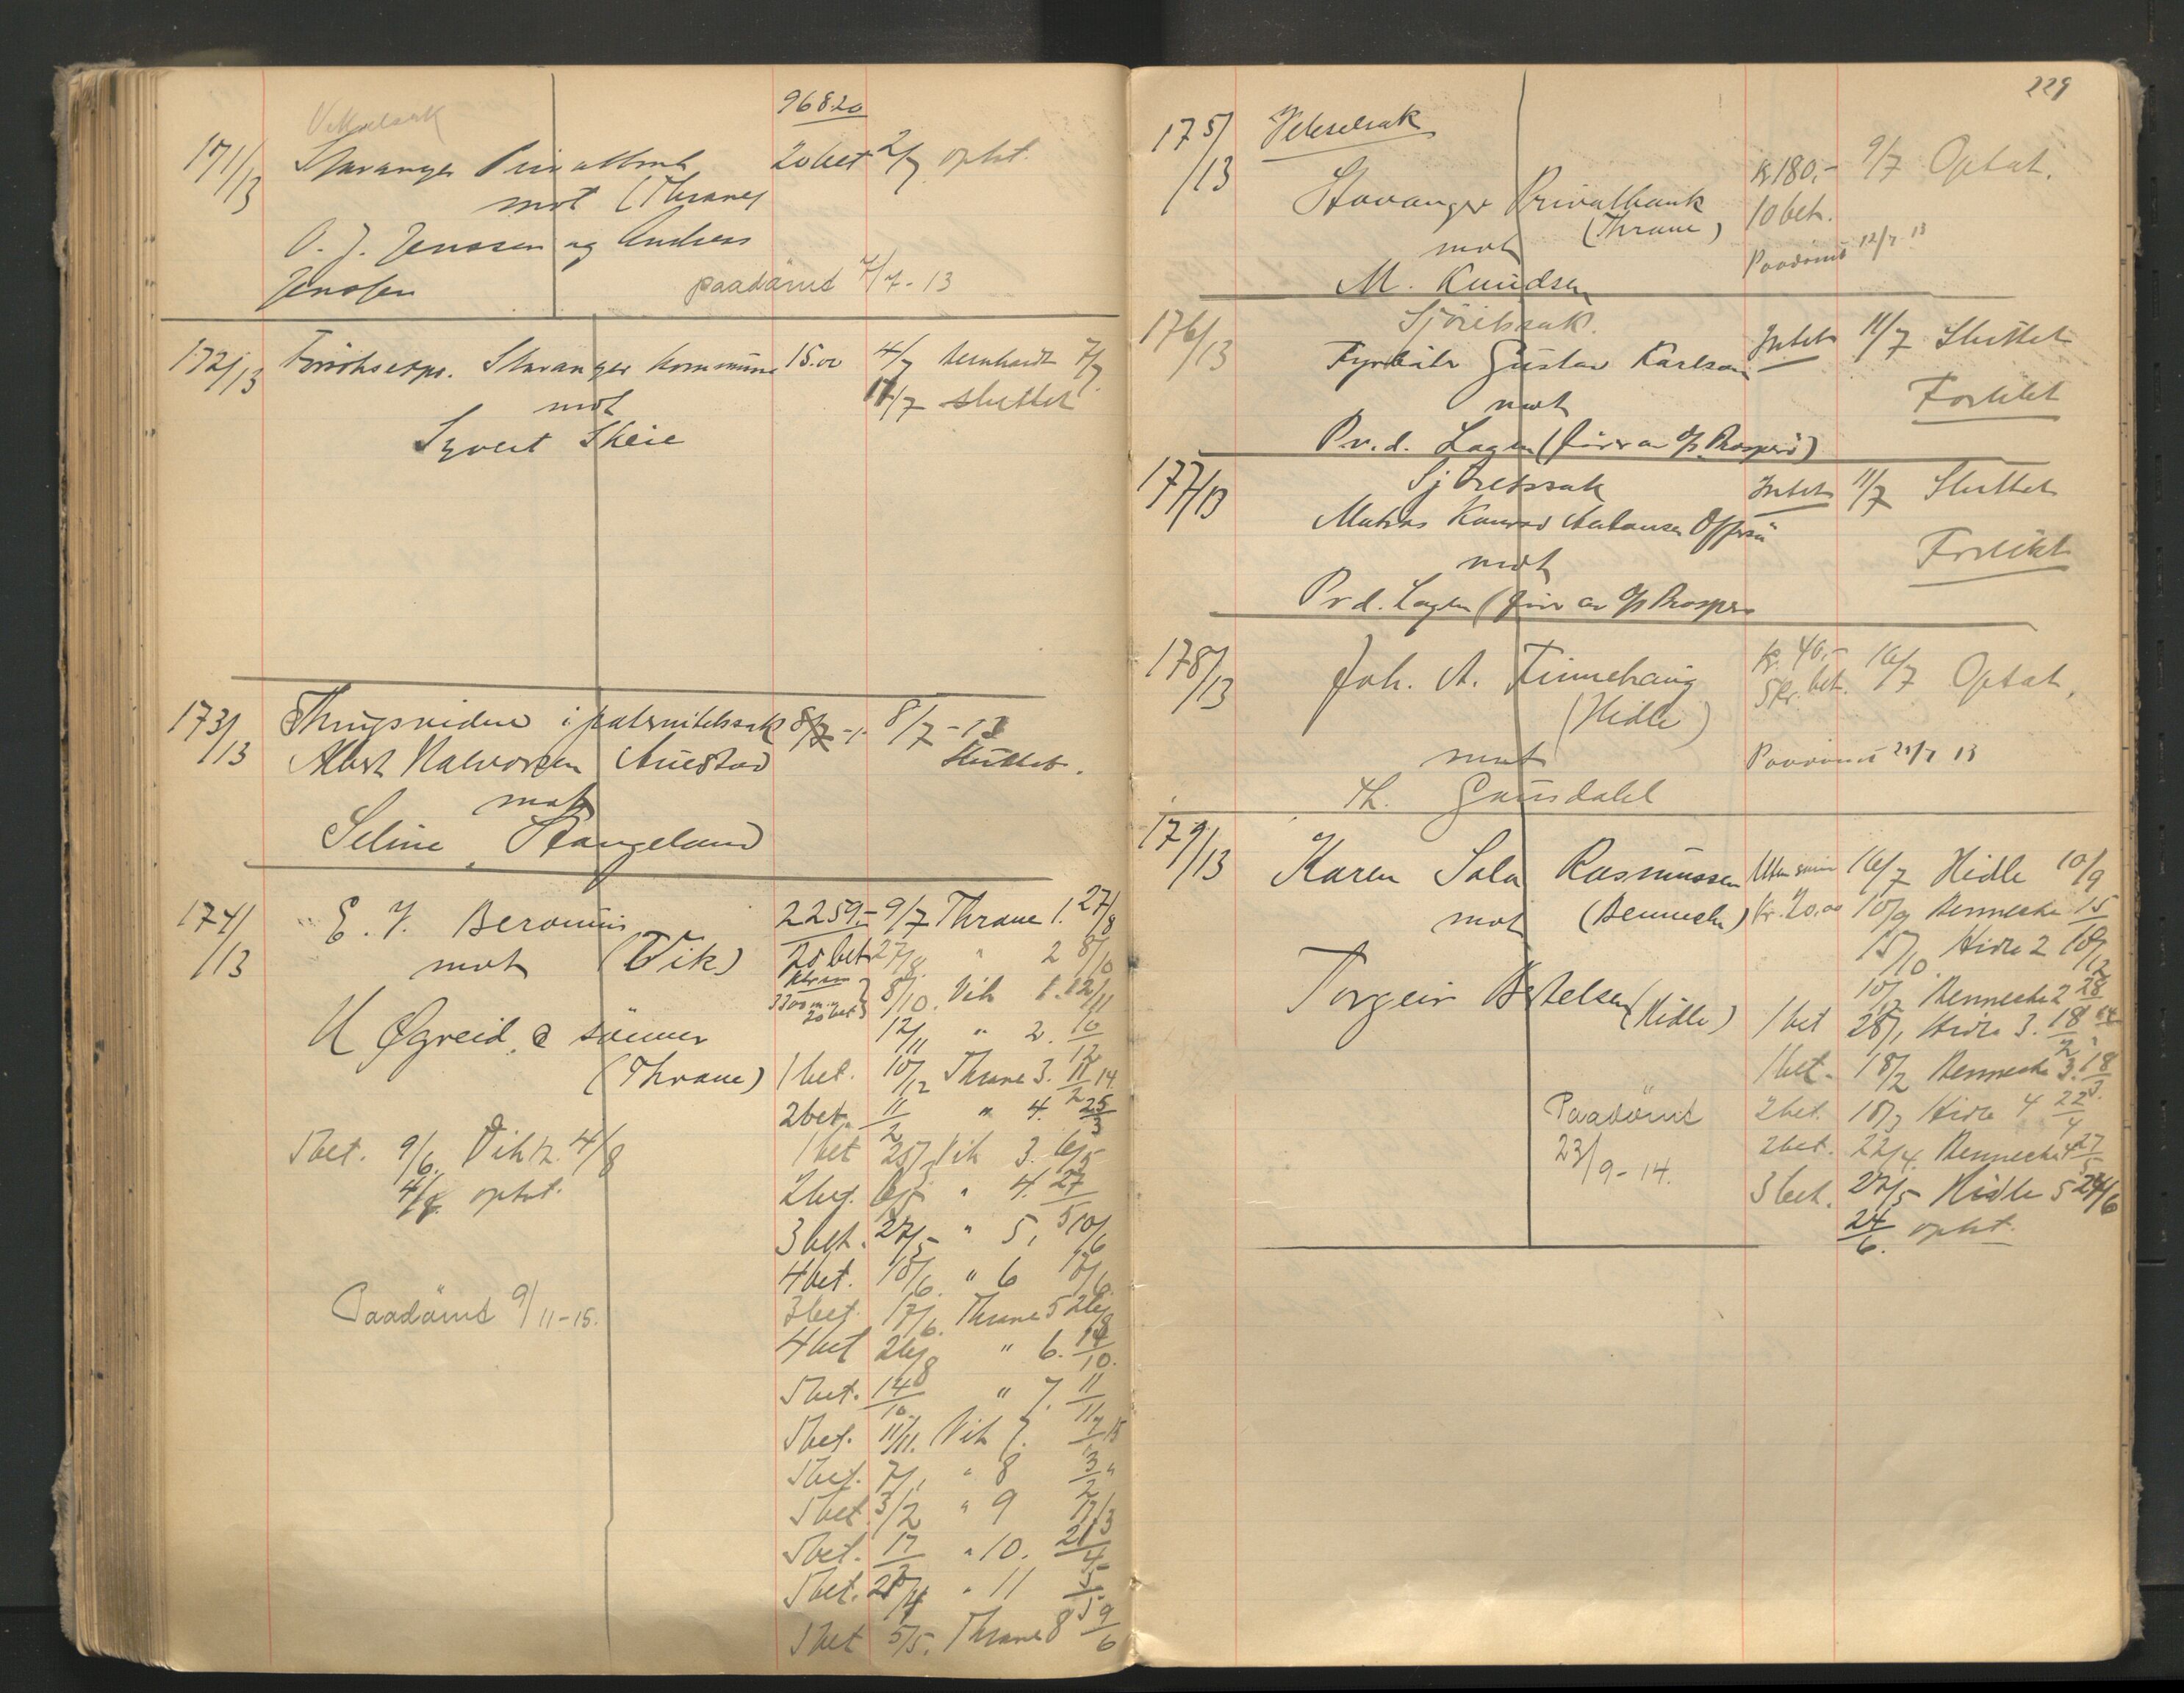 968.20
Vekselsak
171/13 Stavanger Privatbank 20 bet 2/7 optat.
mot (Thrane)
O. J. Jenssen og Andreas
Jenssen paadömt 7/7-13
172/13 Stavanger Kommune 15.00 4/7 Bernhardt 7/7
mot 11/7 sluttet
Syvert Skeie
173/13 Thingsvidne i paternitetssak 8/7 8/7-13
Albert Halvorsen Auestad Sluttet.
mot
Seline Stangeland
174/13 E. Y. Beronius 2259.- 9/7 Thrane 1. 27/8
mot (Vik) 20 bet 27/8 " 2 8/10
8/10. Vik 1. 12/11
H Øgreid & sönner 12/11 " 2. 10/12
(Thrane) 1 bet. 10/12 Thrane 3. 11/2 14.
2 bet. 11/2 " 4. 25/3
5 bet. 9/6. Vik 12. 4/8 1 bet 25/3 Vik 3. 6/5
4/8 optat. 2 bet. 6/5 " 4. 27/5
3 bet. 27/5 " 5, 10/6
4 bet. 10/6. " 6 17/6
Paadömt 9/11-15. 3 bet. 17/6. Thrane 5 26/8
4 bet 26/8 " 6. 14/10.
5 bet. 14/10. " 7. 11/11
5 bet. 11/11. Vik 7. 7/1 15
5 bet. 7/1 " 8 3/2 "
5 bet. 3/2 " 9 17/3
5 bet. 17/3 " 10. 21/4
5 bet. 21/4 " 11 5/5
5 bet 5/5. Thrane 8 9/6
229
175/13 Vekselsak
Stavanger Privatbank kr 180,- 9/7 Optat.
(Thrane) 10 bet.
mot Paadömt 12/7 13
M. Knudsen
176/13 Sjöretssak.
Fyrböter Gustav Karlson Intet 11/7 Sluttet
mot Forlikt
P. v. d. Lagen (förer av S/S Prospero)
177/13 Sjöretssak Intet 11/7 Sluttet
Matros Konrad
mot Forlikt
P v d. Lagen (förer av S/S Prospero
178/13 Joh. A. Finnehaug kr. 40,- 16/7 Optat.
(Hidle) 5 kr. bet.
mot Paadömt 21/7 13
Th. Gausdahl
179/13 Karen Sala Rasmussen 16/7 Hidle 10/9
mot (Bennecke) Kr. 20.00 10/9 Bennecke 15/10
15/10. Hidle 2 10/12
10/12 Bennecke 2 28/1
Torgeir Bertelsen (Hidle) 1 bet 28/1 Hidle 3. 18/2
1 bet. 18/2 Bennecke 3. 18/3.
Paadömt 2 bet. 18/3 Hidle 4 22/4
23/9-14. 2 bet. 22/4. Bennecke 4 27/5
3 bet. 27/5 Hidle 5 24/6
24/6. optat.